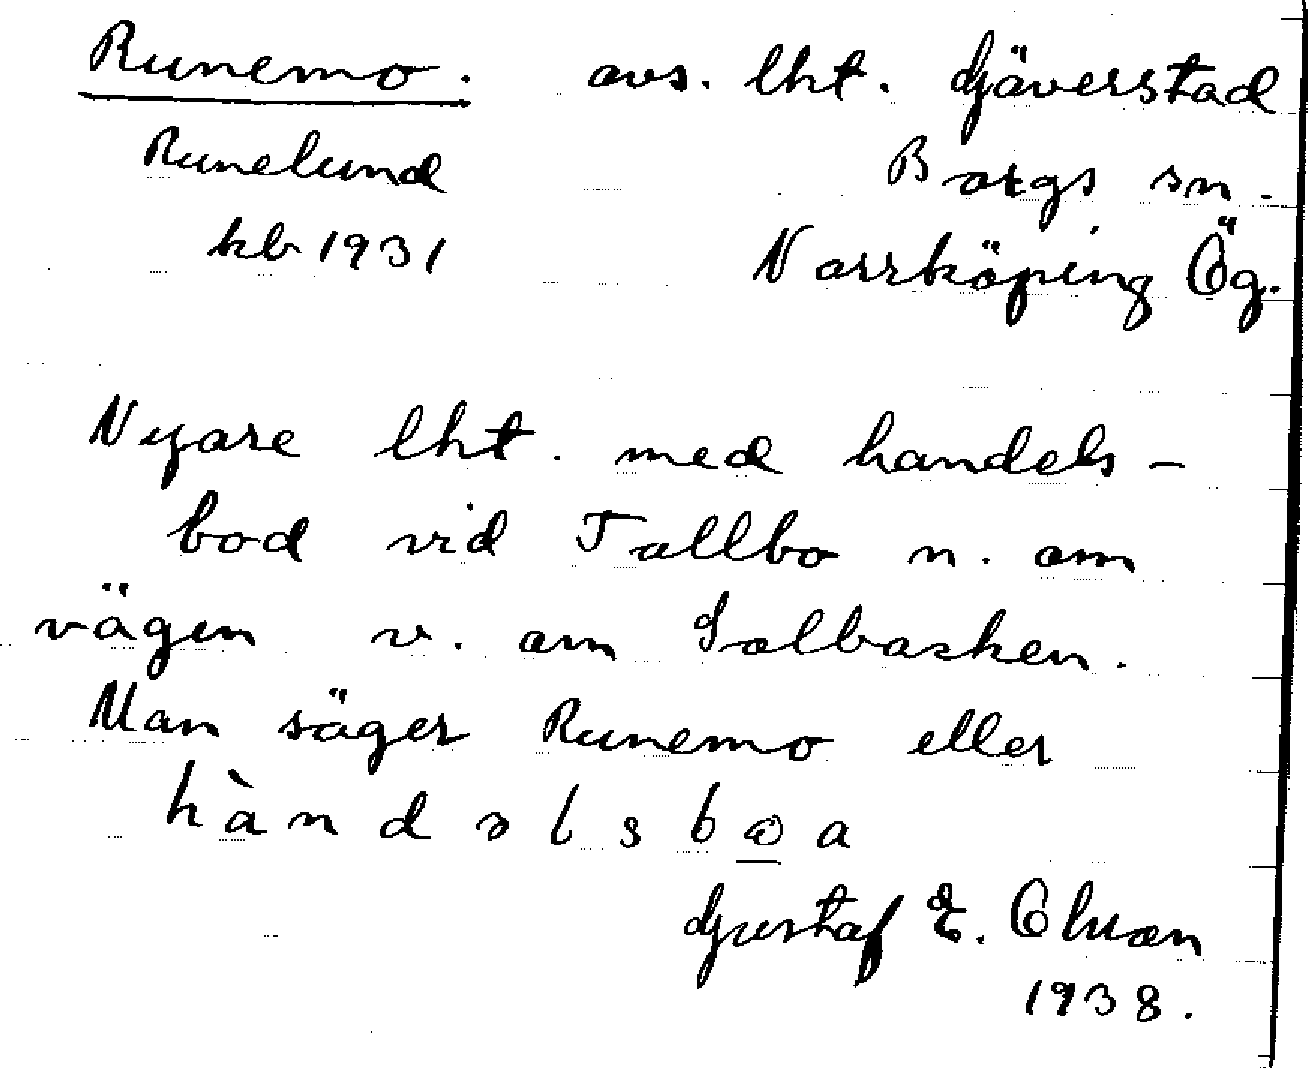 Runemo. avs. lht. Gäverstad
Runelund Borgs sn.
kb 1931 Norrköping Ög.
Nyare lht. med handels-
bod vid Tallbo n. om
vägen v. om Solbacken.
Man säger Runemo eller
hàndəlsbωa
Gustaf E. Olsson
1938.